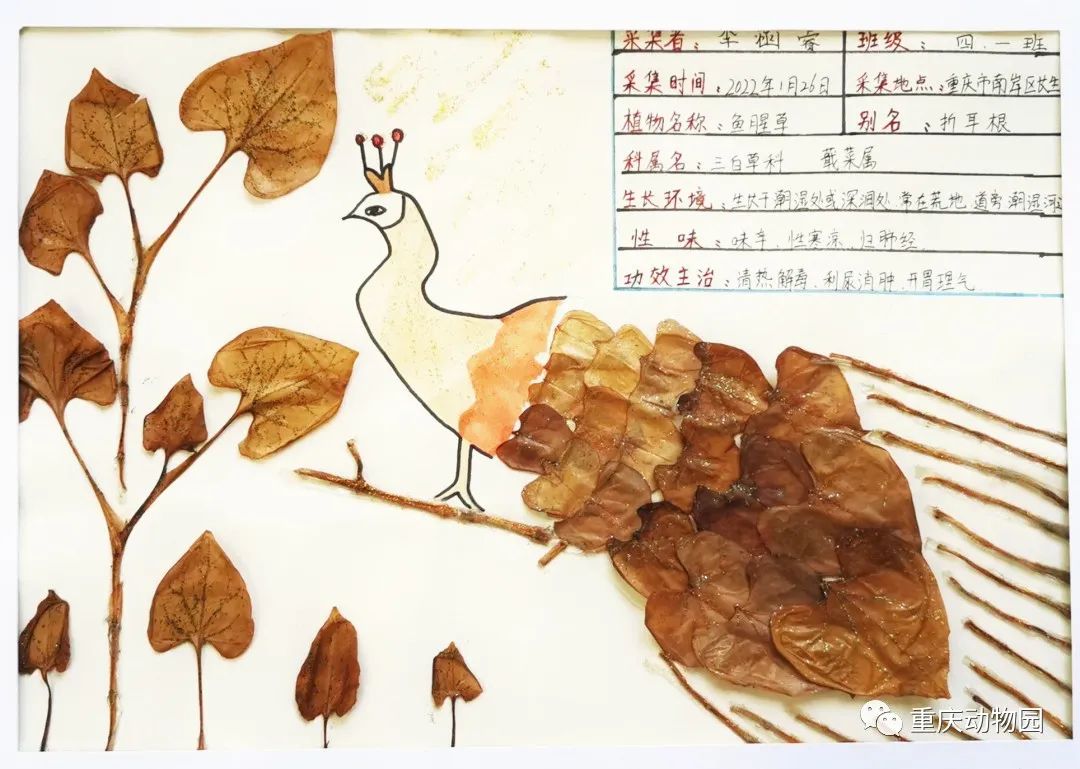 采集者: 华
班级: 四.一班
采集时间: 2022年1月26日
采集地点: 重庆市南岸区长生
植物名称: 鱼腥草
别名: 折耳根
科属名: 三白草科 蕺菜属
生长环境: 生长于潮湿处或深涧处 常在荒地 道旁 潮湿
性味: 味辛, 性寒凉, 归肺经
功效主治: 清热解毒、利尿消肿、开胃理气
重庆动物园